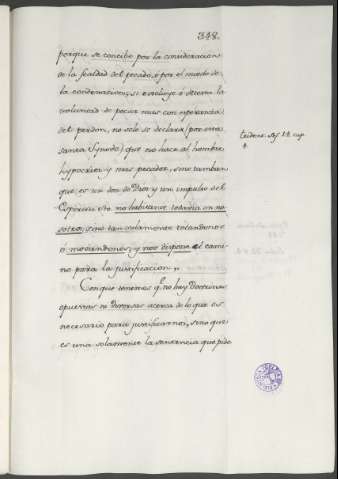 348.
porque se concibe por la consideracion
de la fealdad del pecado, ó por el miedo de
la condenacion, si excluye ó detesta la
voluntad de pecar mas con esperanza
del perdon, no solo se declara (por esta
santa Synodo) que no hace al hombre
hypocrita, y mas pecador, sino tambien
que es un don de Dios y un impulso del
Espiritu Sto. no habitante todavia en no-
sotros, sino tan solamente
ó moviendonos, y nos dispone el cami-
no para la justificacion.,,
Conque tenemos q.e no hay Doctrinas
opuestas ni diversas acerca de lo que es
necesario para justificarnos, sino que
es una solamente la sentencia que pide
Trident. ses. 14. cap.
4.